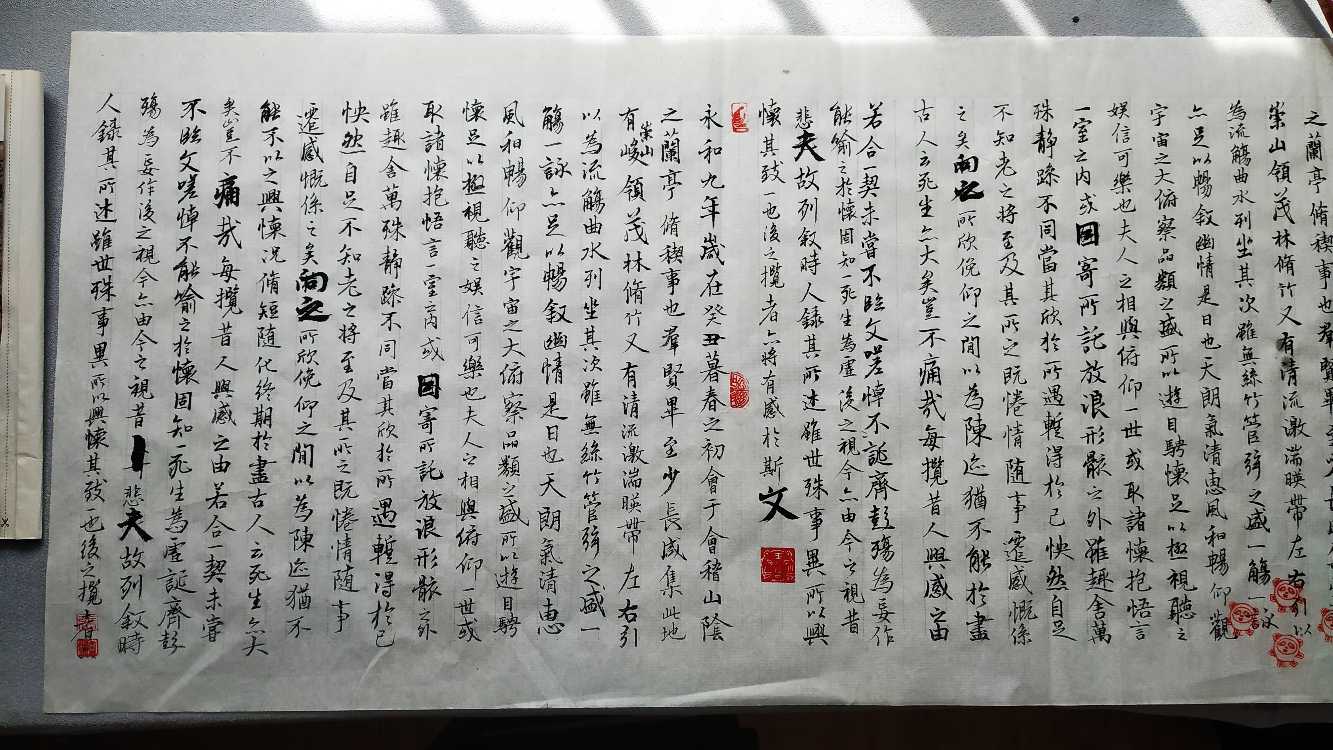 之蘭亭脩稧事也羣賢畢至少
崇山領茂林脩竹又有清流激湍暎帶左右引以
為流觴曲水列坐其次雖無絲竹管弦之盛一觴一詠
亦足以暢叙幽情是日也天朗氣清惠風和暢仰觀
宇宙之大俯察品類之盛所以遊目騁懷足以極視聽之
娛信可樂也夫人之相與俯仰一世或取諸懷抱悟言
一室之内或因寄所託放浪形骸之外雖趣舍萬
殊靜躁不同當其欣於所遇蹔得於己怏然自足
不知老之將至及其所之既惓情隨事遷感慨係
之矣向之所欣俛仰之閒以為陳迹猶不能於盡
古人云死生亦大矣豈不痛哉每攬昔人興感之由
若合一契未嘗不臨文嗟悼不誕齊彭殤為妄作
能喻之於懷固知一死生為虛後之視今亦由今之視昔
悲夫故列叙時人錄其所述雖世殊事異所以興
懷其致一也後之攬者亦將有感於斯文
永和九年歲在癸丑暮春之初會于會稽山陰
之蘭亭脩稧事也羣賢畢至少長咸集此地
有崇山峻領茂林脩竹又有清流激湍暎帶左右引
以為流觴曲水列坐其次雖無絲竹管弦之盛一
觴一詠亦足以暢叙幽情是日也天朗氣清惠
風和暢仰觀宇宙之大俯察品類之盛所以遊目騁
懷足以極視聽之娛信可樂也夫人之相與俯仰一世或
取諸懷抱悟言一室之内或因寄所託放浪形骸之外
雖趣舍萬殊靜躁不同當其欣於所遇蹔得於己
怏然自足不知老之將至及其所之既惓情隨事
遷感慨係之矣向之所欣俛仰之閒以為陳迹猶不
能不以之興懷況脩短隨化終期於盡古人云死生亦大
矣豈不痛哉每攬昔人興感之由若合一契未嘗
不臨文嗟悼不能喻之於懷固知一死生為虛誕齊彭
殤為妄作後之視今亦由今之視昔悲夫故列叙時
人錄其所述雖世殊事異所以興懷其致一也後之攬者